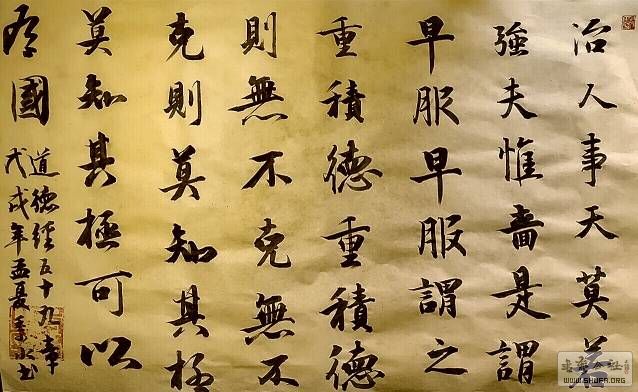 治人事天莫若
強夫惟嗇是謂
早服早服謂之
重積德重積德
則無不克無不
克則莫知其極
莫知其極可以
有國
道德經五十九章
戊戌年孟夏书
WWW.SHUFA.ORG